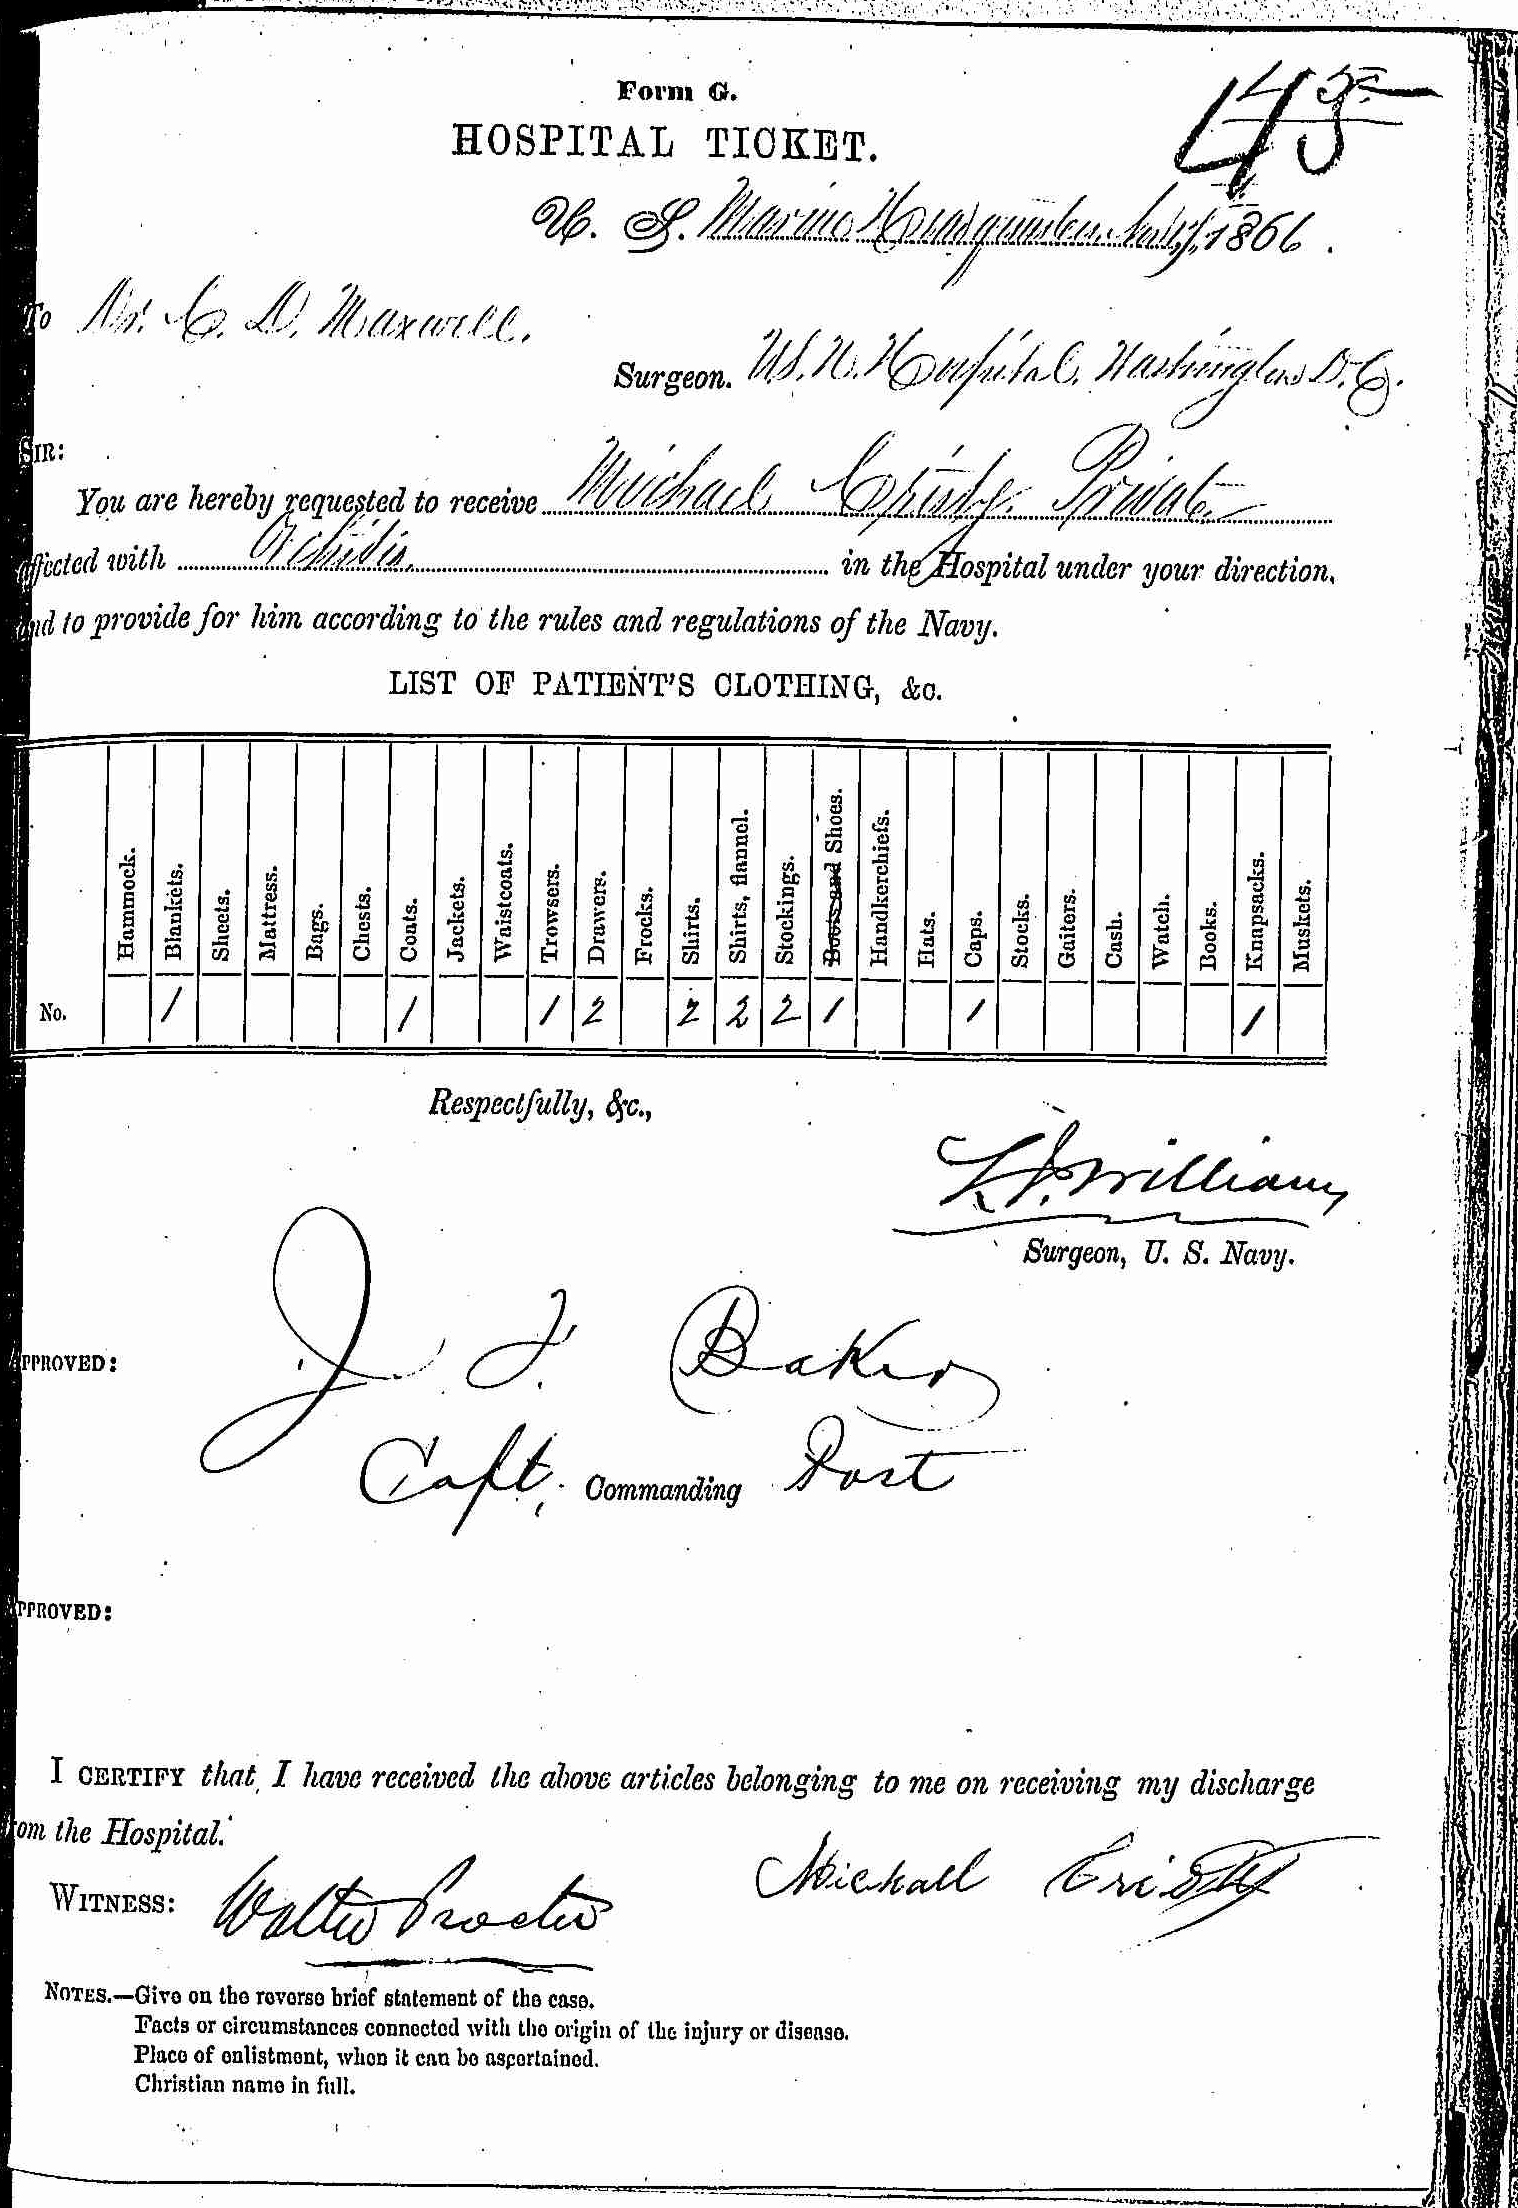 Form G.
45
HOSPITAL TICKET.
U. S. Marine Headquarters, 1866.
To Dr. C. D. Maxwell.
Surgeon. U.S.N. Hospital, Washington D.C.
SIR:
You are hereby requested to receive Michael Cristy. Private
affected with Orchitis, in the Hospital under your direction,
and to provide for him according to the rules and regulations of the Navy.
LIST OF PATIENT'S CLOTHING, &c.
Hammock. Blankets. Sheets. Mattress. Bags. Chests. Coats. Jackets. Waistcoats. Trowsers. Drawers. Frocks. Shirts. Shirts, flannel. Stockings. Boots and Shoes. Handkerchiefs. Hats. Caps. Stocks. Gaiters. Cash. Watch. Books. Knapsacks. Muskets.
No. 1 1 1 2 2 2 2 1 1 1
Respectfully, &c.,
Williams
Surgeon, U. S. Navy.
APPROVED: J. F. Baker
Capt, Commanding Post
APPROVED:
I CERTIFY that I have received the above articles belonging to me on receiving my discharge
from the Hospital.
Michall Cristy
WITNESS: Walter Procter
NOTES.—Give on the reverse brief statement of the case.
Facts or circumstances connected with the origin of the injury or disease.
Place of enlistment, when it can be ascertained.
Christian name in full.